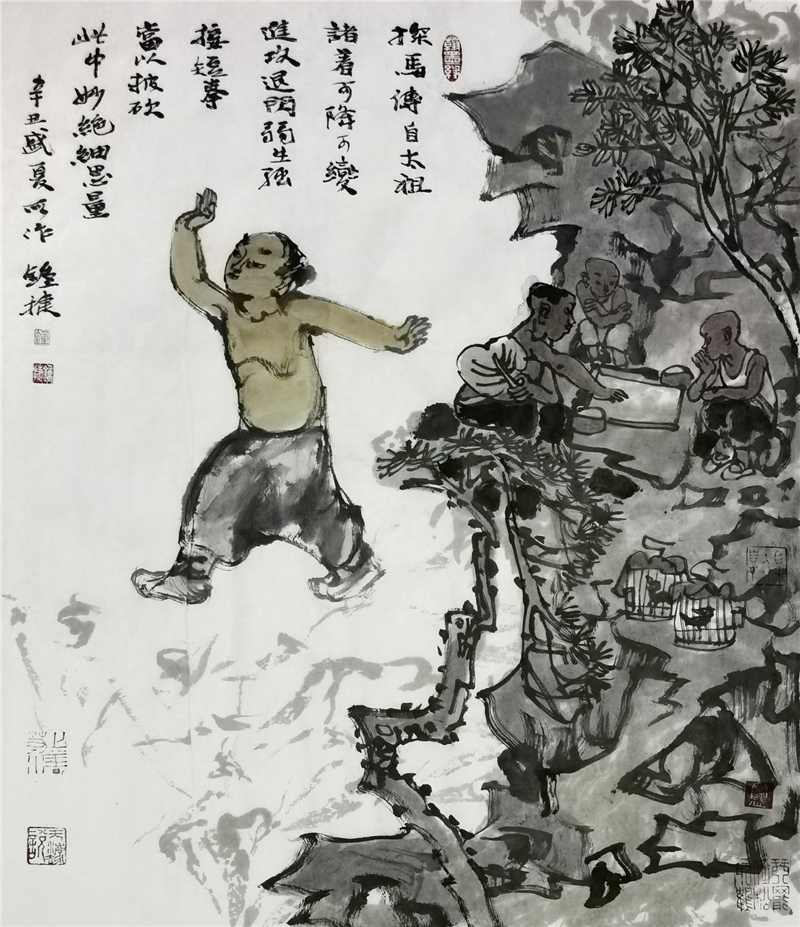 探馬傳自太祖
諸着可降可變
進攻退閃弱生強
接短拳
當以披砍
此中妙絕細思量
辛丑盛夏所作 鐘捷